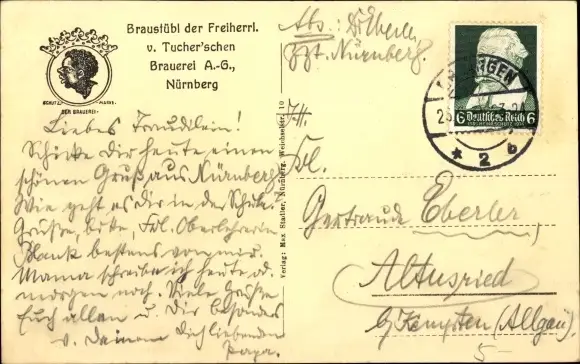 Braustübl der Freiherrl.
v. Tucher'schen
Brauerei A.-G.,
Nürnberg
SCHUTZ MARKE
DER BRAUEREI
Liebes Traudilein!
Schicke Dir heute einen
schönen Gruß aus Nürnberg.
Wie geht es Dir in der Schule?
Grüße, bitte, Frl. Oberlehrerin
Blank bestens von mir.
Mama schreibe ich heute od.
morgen noch. Viele Grüße
Euch allen u. Dir besonders
v. Deinem Dich liebenden
Papa.
Verlag: Max Stadler, Nürnberg, Weichselstr. 10
Abs.: Dr. Eberle,
zzt. Nürnberg.
Deutsches Reich
6 6
2 b
Frl.
Gertraude Eberler,
Altusried
b/ Kempten (Allgäu)
5-